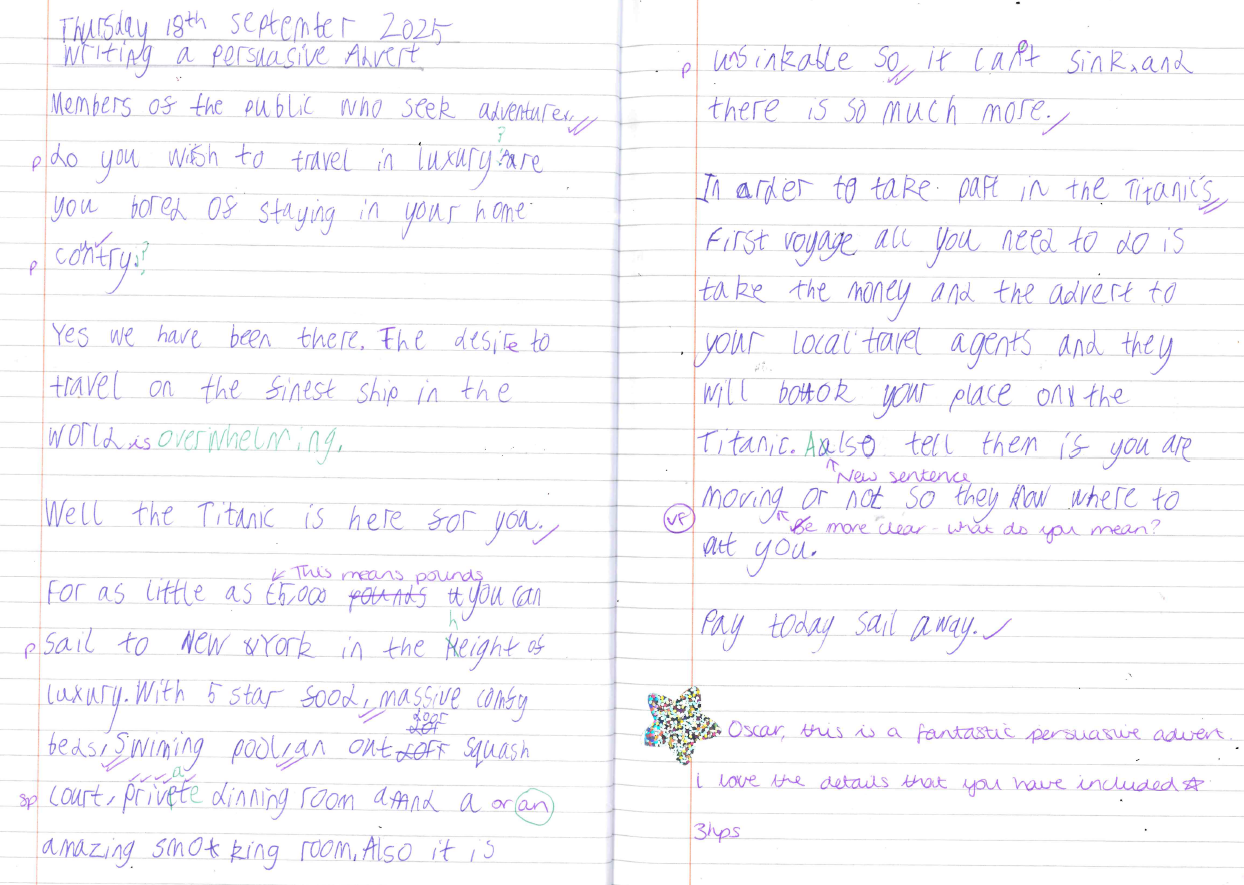 Thursday 18th September 2025
Writing a persuasive Advert
Members of the public who seek adventure,
?
p do you wish to travel in luxury? are
you bored of staying in your home
p contry?
Yes we have been there. The desire to
travel on the finest ship in the
world is overwhelming.
Well the Titanic is here for you.
This means pounds
For as little as £5,000 pounds you can
h
p sail to New York in the Height of
luxury. With 5 star food, massive comfy
door
beds, swiming pool, an out squash
a
sp court, private dinning room and a or an
amazing smoking room. Also it is
p unsinkable so, it can't sink, and
there is so much more.
In order to take part in the Titanic's
first voyage all you need to do is
take the money and the advert to
your local travel agents and they
will book your place on the
Titanic. Also tell them if you are
New sentence
moving or not so they know where to
VF Be more clear - what do you mean?
put you.
Pay today sail away.
Oscar, this is a fantastic persuasive advert.
I love the details that you have included
3hps